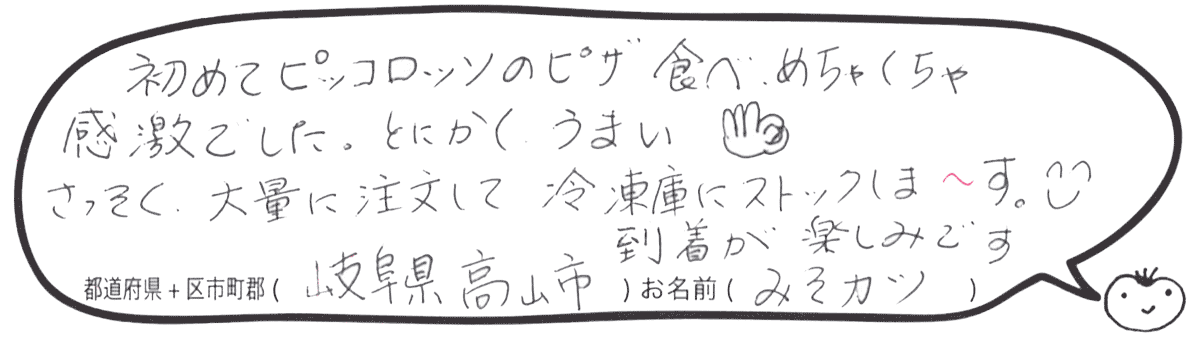 初めてピッコロッソのピザ 食べ、めちゃくちゃ
感激でした。とにかく うまい
さっそく、大量に注文して 冷凍庫にストックしま〜す。
到着が 楽しみです
都道府県＋区市町郡（ 岐阜県 高山市 ）お名前（ みそカツ ）